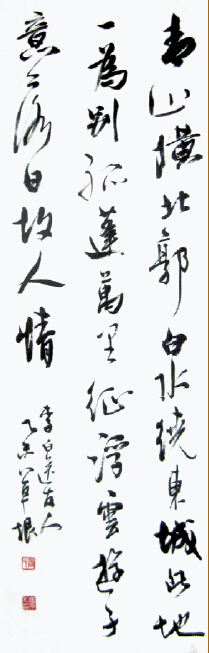 青山橫北郭白水繞東城此地
一為別孤蓬萬里征浮雲遊子
意落日故人情
李白送友人